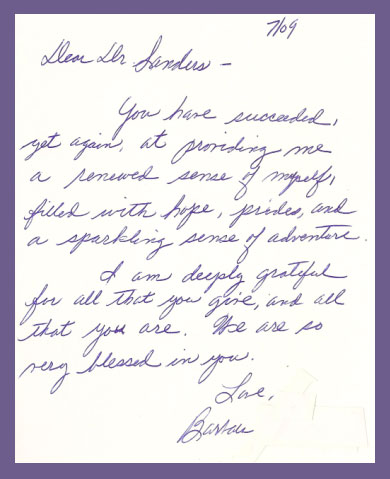 7/09
Dear Dr. Sanders –
You have succeeded,
yet again, at providing me
a renewed sense of myself,
filled with hope, prides, and
a sparkling sense of adventure.
I am deeply grateful
for all that you give, and all
that you are. We are so
very blessed in you.
Love,